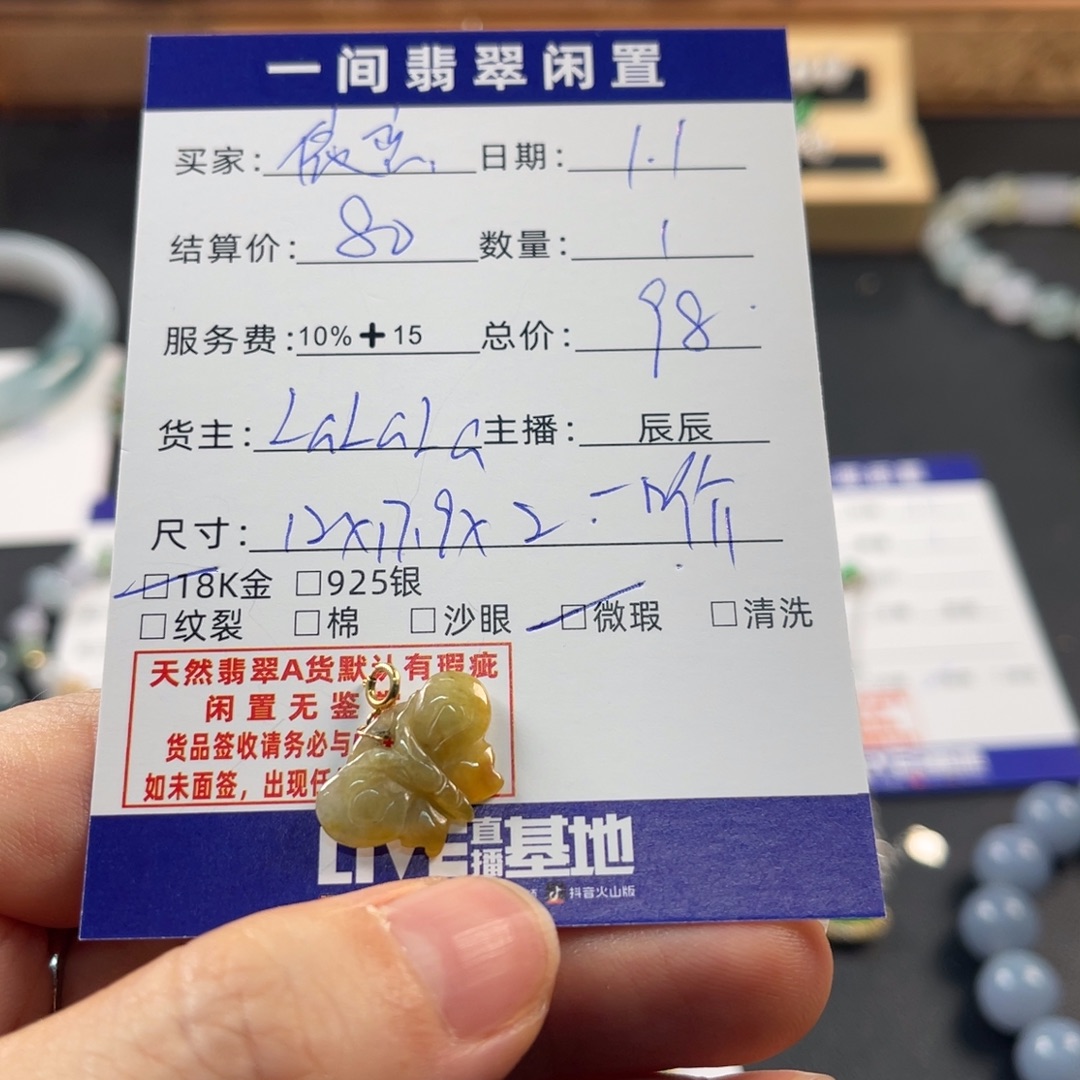 一间翡翠闲置
买家: 日期: 1.1
结算价: 80 数量: 1
服务费: 10%+15 总价: 98
货主: LaLaLa 主播: 辰辰
尺寸: 12x17.9x2 一口价
□18K金 □925银
□纹裂 □棉 □沙眼 □微瑕 □清洗
天然翡翠A货默认有瑕疵
闲置无鉴
货品签收请务必与
如未面签，出现任
LIVE直播基地
抖音火山版